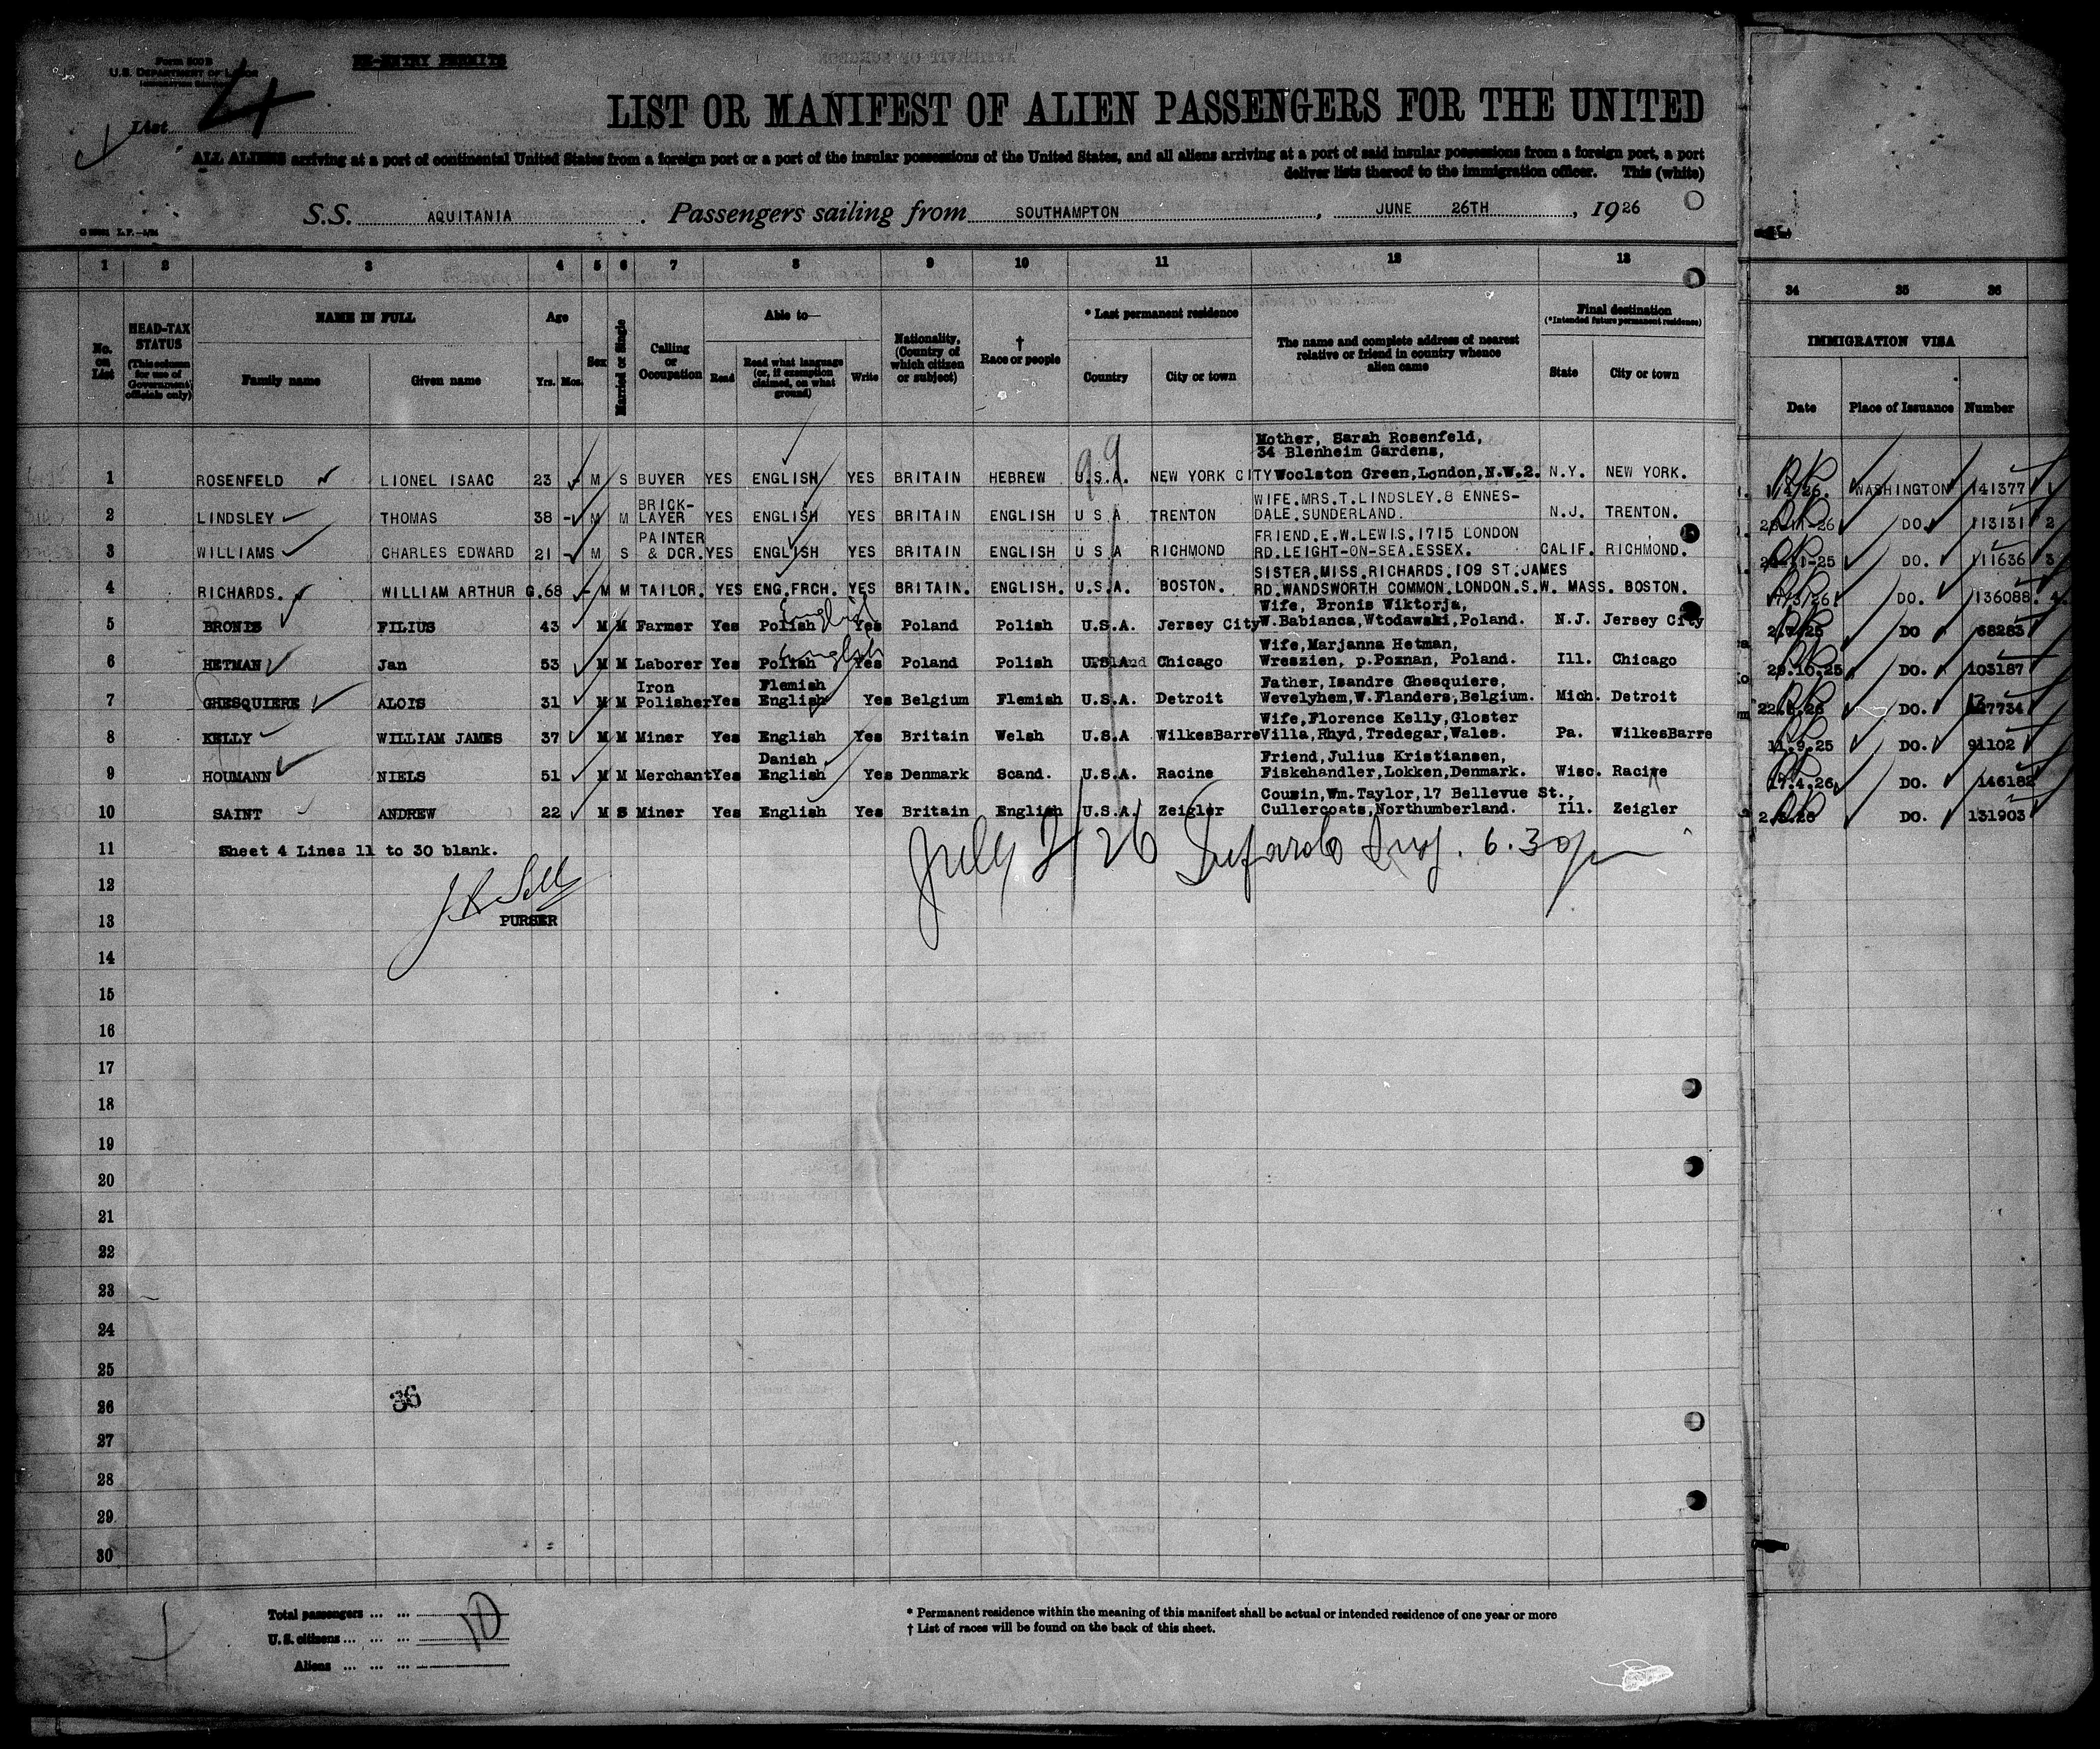 Form 500 B
U.S. DEPARTMENT OF LABOR
RE-ENTRY PERMITS
List 4
LIST OR MANIFEST OF ALIEN PASSENGERS FOR THE UNITED
ALL ALIENS arriving at a port of continental United States from a foreign port or a port of the insular possessions of the United States, and all aliens arriving at a port of said insular possessions from a foreign port, a port
deliver lists thereof to the immigration officer. This (white)
S.S. AQUITANIA. Passengers sailing from SOUTHAMPTON, JUNE 26TH, 1926
1 2 3 4 5 6 7 8 9 10 11 12 13 34 35 36
No. on List
HEAD-TAX STATUS (This column for use of Government officials only)
NAME IN FULL
Family name Given name
Age
Yrs. Mos.
Sex
Married or Single
Calling or Occupation
Able to—
Read Read what language (or, if exemption claimed, on what ground) Write
Nationality, (Country of which citizen or subject)
† Race or people
* Last permanent residence
Country City or town
The name and complete address of nearest relative or friend in country whence alien came
Final destination
(*Intended future permanent residence)
State City or town
IMMIGRATION VISA
Date Place of Issuance Number
Mother, Sarah Rosenfeld,
34 Blenheim Gardens,
99
1 ROSENFELD LIONEL ISAAC 23 M S BUYER YES ENGLISH YES BRITAIN HEBREW U.S.A. NEW YORK CITY Woolston Green,London,N.W.2. N.Y. NEW YORK. WASHINGTON 141377 1
BRICK- WIFE.MRS.T.LINDSLEY.8 ENNES-
2 LINDSLEY THOMAS 38 - M M LAYER YES ENGLISH YES BRITAIN ENGLISH U S A TRENTON DALE.SUNDERLAND. N.J. TRENTON. DO. 113131 2
PAINTER FRIEND.E.W.LEWIS.1715 LONDON
3 WILLIAMS CHARLES EDWARD 21 - M S & DCR. YES ENGLISH YES BRITAIN ENGLISH U S A RICHMOND RD.LEIGHT-ON-SEA.ESSEX. CALIF. RICHMOND. DO. 111636 3
SISTER.MISS.RICHARDS.109 ST.JAMES
4 RICHARDS. WILLIAM ARTHUR G. 68 - M M TAILOR. YES ENG.FRCH. YES BRITAIN. ENGLISH. U.S.A. BOSTON. RD.WANDSWORTH COMMON.LONDON.S.W. MASS. BOSTON. DO. 136088. 4
English Wife, Bronis Wiktorja,
5 BRONIS FILIUS 43 M M Farmer Yes Polish Yes Poland Polish U.S.A. Jersey City W.Babianca,Wtodawski,Poland. N.J. Jersey City DO 68283
English Wife,Marjanna Hetman,
6 HETMAN Jan 53 M M Laborer Yes Polish Yes Poland Polish U.S.A. Chicago Wreszien, p.Poznan, Poland. Ill. Chicago 20.10.25 DO. 103187
Iron Flemish Father, Isandre Ghesquiere,
7 GHESQUIERE ALOIS 31 M M Polisher Yes English Yes Belgium Flemish U.S.A. Detroit Wevelyhem,W.Flanders,Belgium. Mich. Detroit DO. 127734
Wife,Florence Kelly,Gloster
8 KELLY WILLIAM JAMES 37 M M Miner Yes English Yes Britain Welsh U.S.A WilkesBarre Villa,Rhyd,Tredegar,Wales. Pa. WilkesBarre 11.9.25 DO. 91102
Danish Friend,Julius Kristiansen,
9 HOUMANN NIELS 51 M M Merchant Yes English Yes Denmark Scand. U.S.A. Racine Fiskehandler,Lokken,Denmark. Wisc. Racine 17.4.26 DO. 146182
Cousin,Wm.Taylor,17 Bellevue St.,
10 SAINT ANDREW 22 M S Miner Yes English Yes Britain English U.S.A. Zeigler Cullercoats,Northumberland. Ill. Zeigler DO. 131903
11 Sheet 4 Lines 11 to 30 blank.
July 2/26 6.30pm
12
13 PURSER
14
15
16
17
18
19
20
21
22
23
24
25
26
36
27
28
29
30
Total passengers ... ... 10
U.S. citizens ... ... ...
Aliens ... ... ...
* Permanent residence within the meaning of this manifest shall be actual or intended residence of one year or more
† List of races will be found on the back of this sheet.